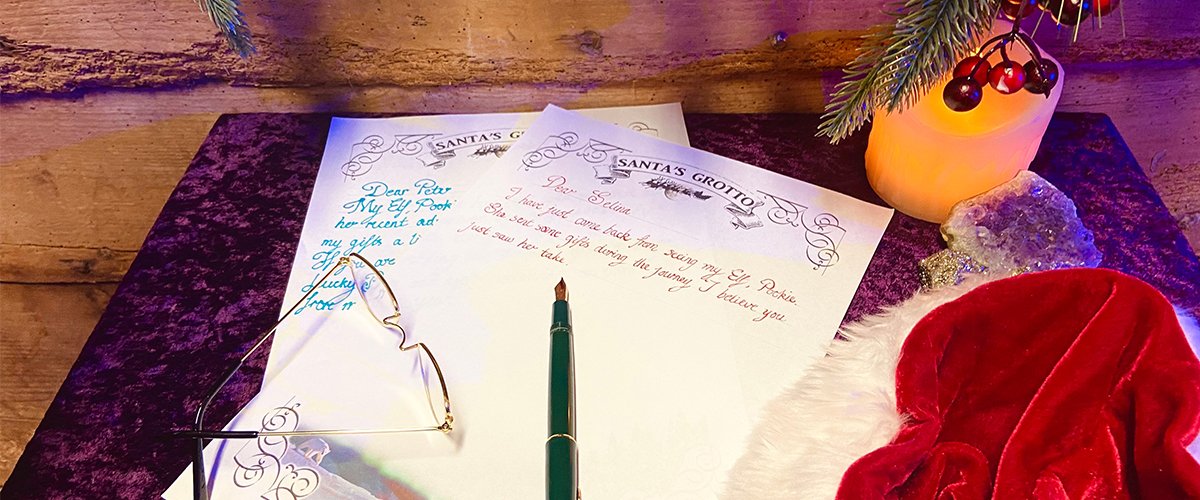 SANTA'S GRO
Dear Peter
My Elf Pook
her recent ad
my gifts a
If you are
Lucky
from
SANTA'S GROTTO
Dear Selina
I have just come back from seeing my Elf, Pookie.
She sent some gifts during the journey, I believe you
just saw her take